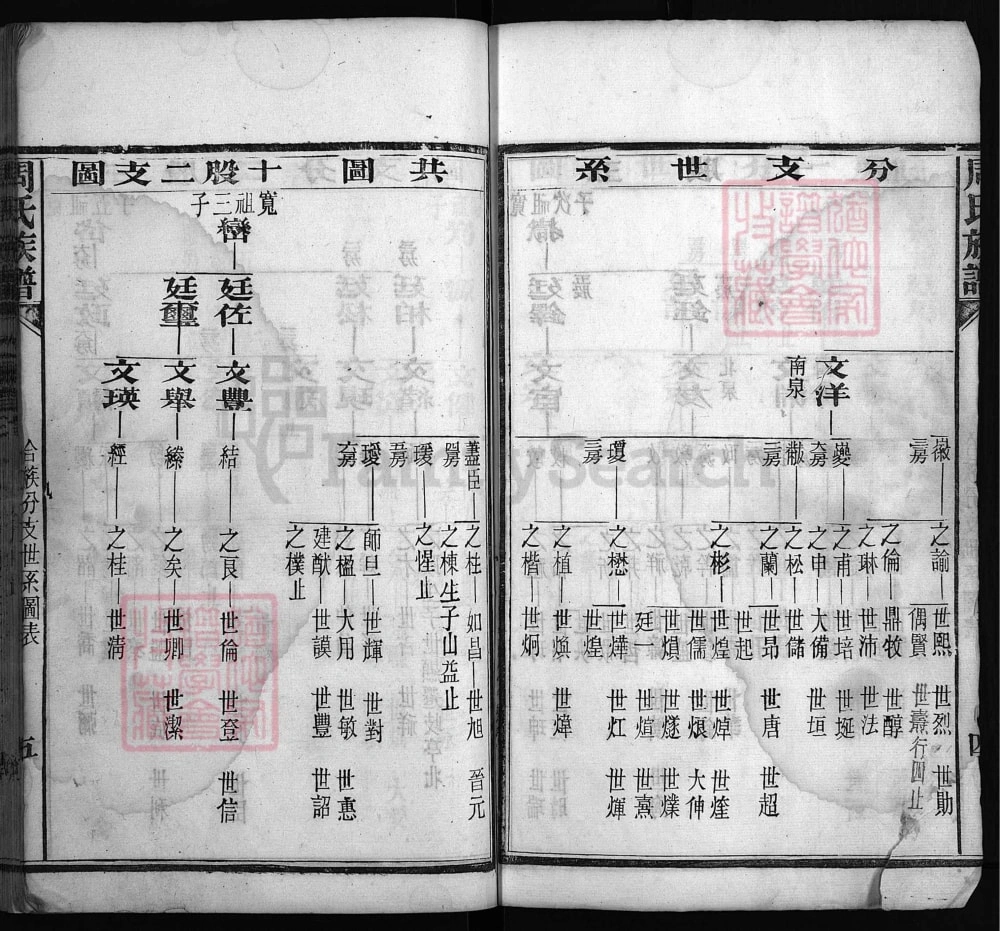 周氏族譜
分支世系
文洋
南泉
徽
三房
之諭
世熙 世烈 世勛
偶賢 世燾行四止
夔
大房
之倫
鼎牧 世醇
之琳
世沛 世法
之甫
世培 世埏
之申
大備 世垣
徽
二房
之松
世儲
之蘭
世昂 世唐 世超
世起
之彬
世煌 世焯 世煃
世儒 世烺 大伸
世熉 世燧 世爍
廷 世煊 世熹
瓊
三房
之懋
世燁 世灴 世煇
世煌
之植
世煥 世煒
之楷
世炯
共圖
十股二支圖
寬祖三子
巒
廷佐
廷璽
文豐
文舉
文瑛
藎臣
四房
之柱
如昌
世旭 晉元
之棟生子山益止
瑗
五房
之惺止
璦
大房
師旦
世輝 世對
之楹
大用 世敏 世憓
建猷
世謨 世豐 世詔
之樸止
結
之良
世倫 世登 世信
縧
之矣
世卿 世潔
經
之桂
世清
周氏族譜
合族分支世系圖表
五
FamilySearch